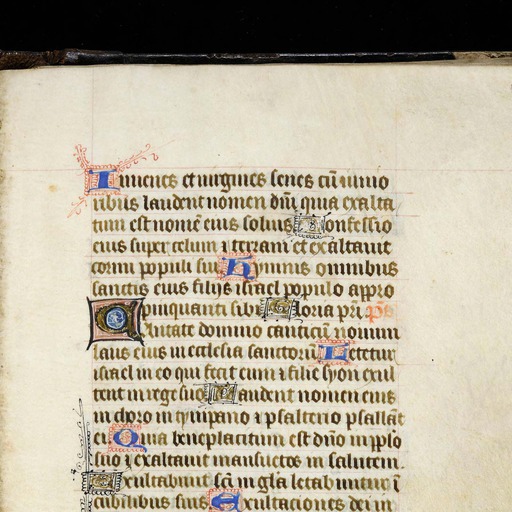 Iuuenes et uirgines senes cū iunio
ribus laudent nomen dnī quia exalta
tum est nomē eius solius Confessio
eius super celum ⁊ terram et exaltauit
cornu populi sui Hymnus omnibus
sanctis eius filijs israel populo appro
pinquanti sibi Gloria pr̄i. p̄s
Cantate domino canticū nouum
laus eius in ecclesia sanctorū Letetur
israel in eo qui fecit eum ⁊ filie syon exul
tent in rege suo Laudent nomen eius
in choro in tympano ⁊ psalterio psallāt
ei Quia beneplacitum est dn̄o in pplo
suo ⁊ exaltauit mansuetos in salutem.
Exultabunt sc̄i in gl̄a letabuntur ī
cubilibus suis Exultaciones dei in